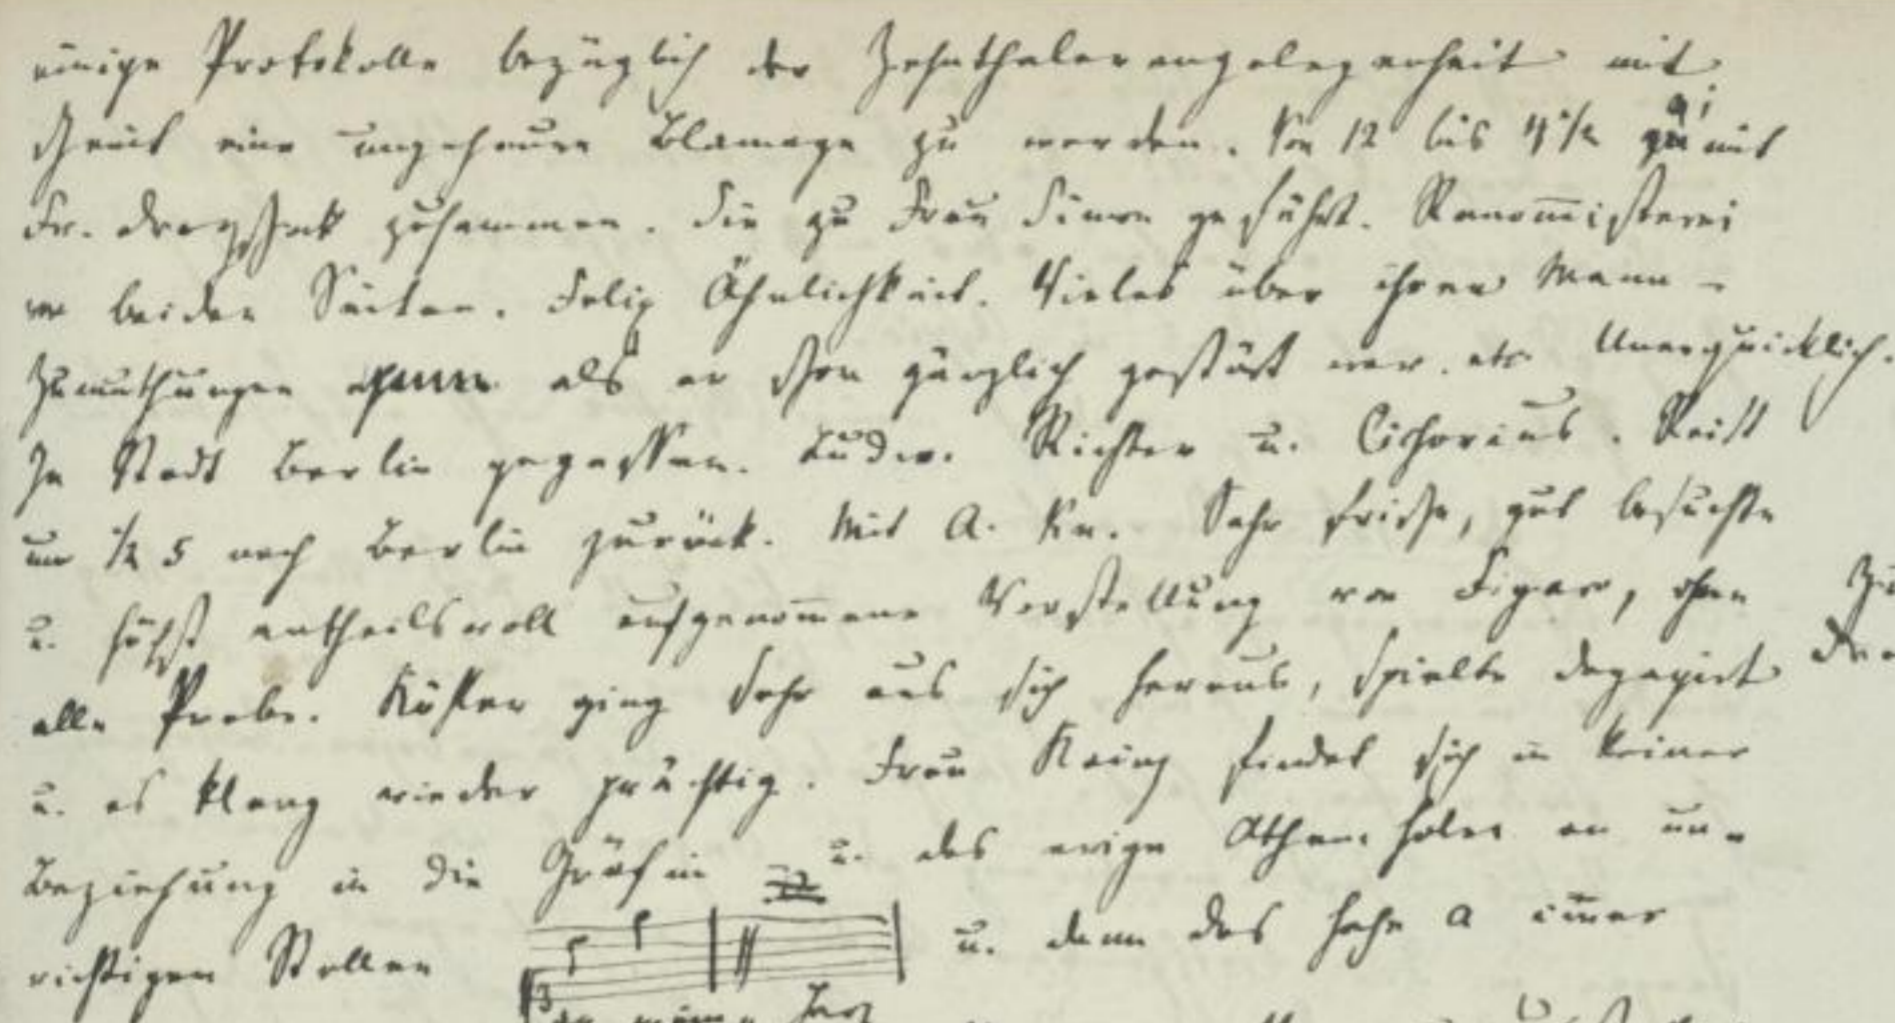 einige Protokolle bezüglich der Zehnthalerangelegenheit mit
eine ungeheure Blamage zu werden. Von 12 bis 4 1/2 mit
Fr. Dreyschock zusammen. Sie zu Frau Simon geführt. Renommisterei
von beiden Seiten. Felix Ähnlichkeit. Vieles über ihren Mann –
Zumuthungen als er schon gänzlich gestört war. etc Unerquicklich.
In Stadt Berlin gegessen. Ludw. Richter u. Cichorius. Reist
um 1/2 5 nach Berlin zurück. Mit A. Kn. Sehr frische, gut besuchte
u. höchst antheilsvoll aufgenom̅ene Vorstellung von Figaro, ohne
alle Probe. Köster ging sehr aus sich heraus, spielte degagirt
u. es klang wieder prächtig. Frau Kainz findet sich in keiner
Beziehung in die Gräfin u. das ewige Athemholen an un-
richtigen Stellen u. dann das hohe a im̅er
Herz